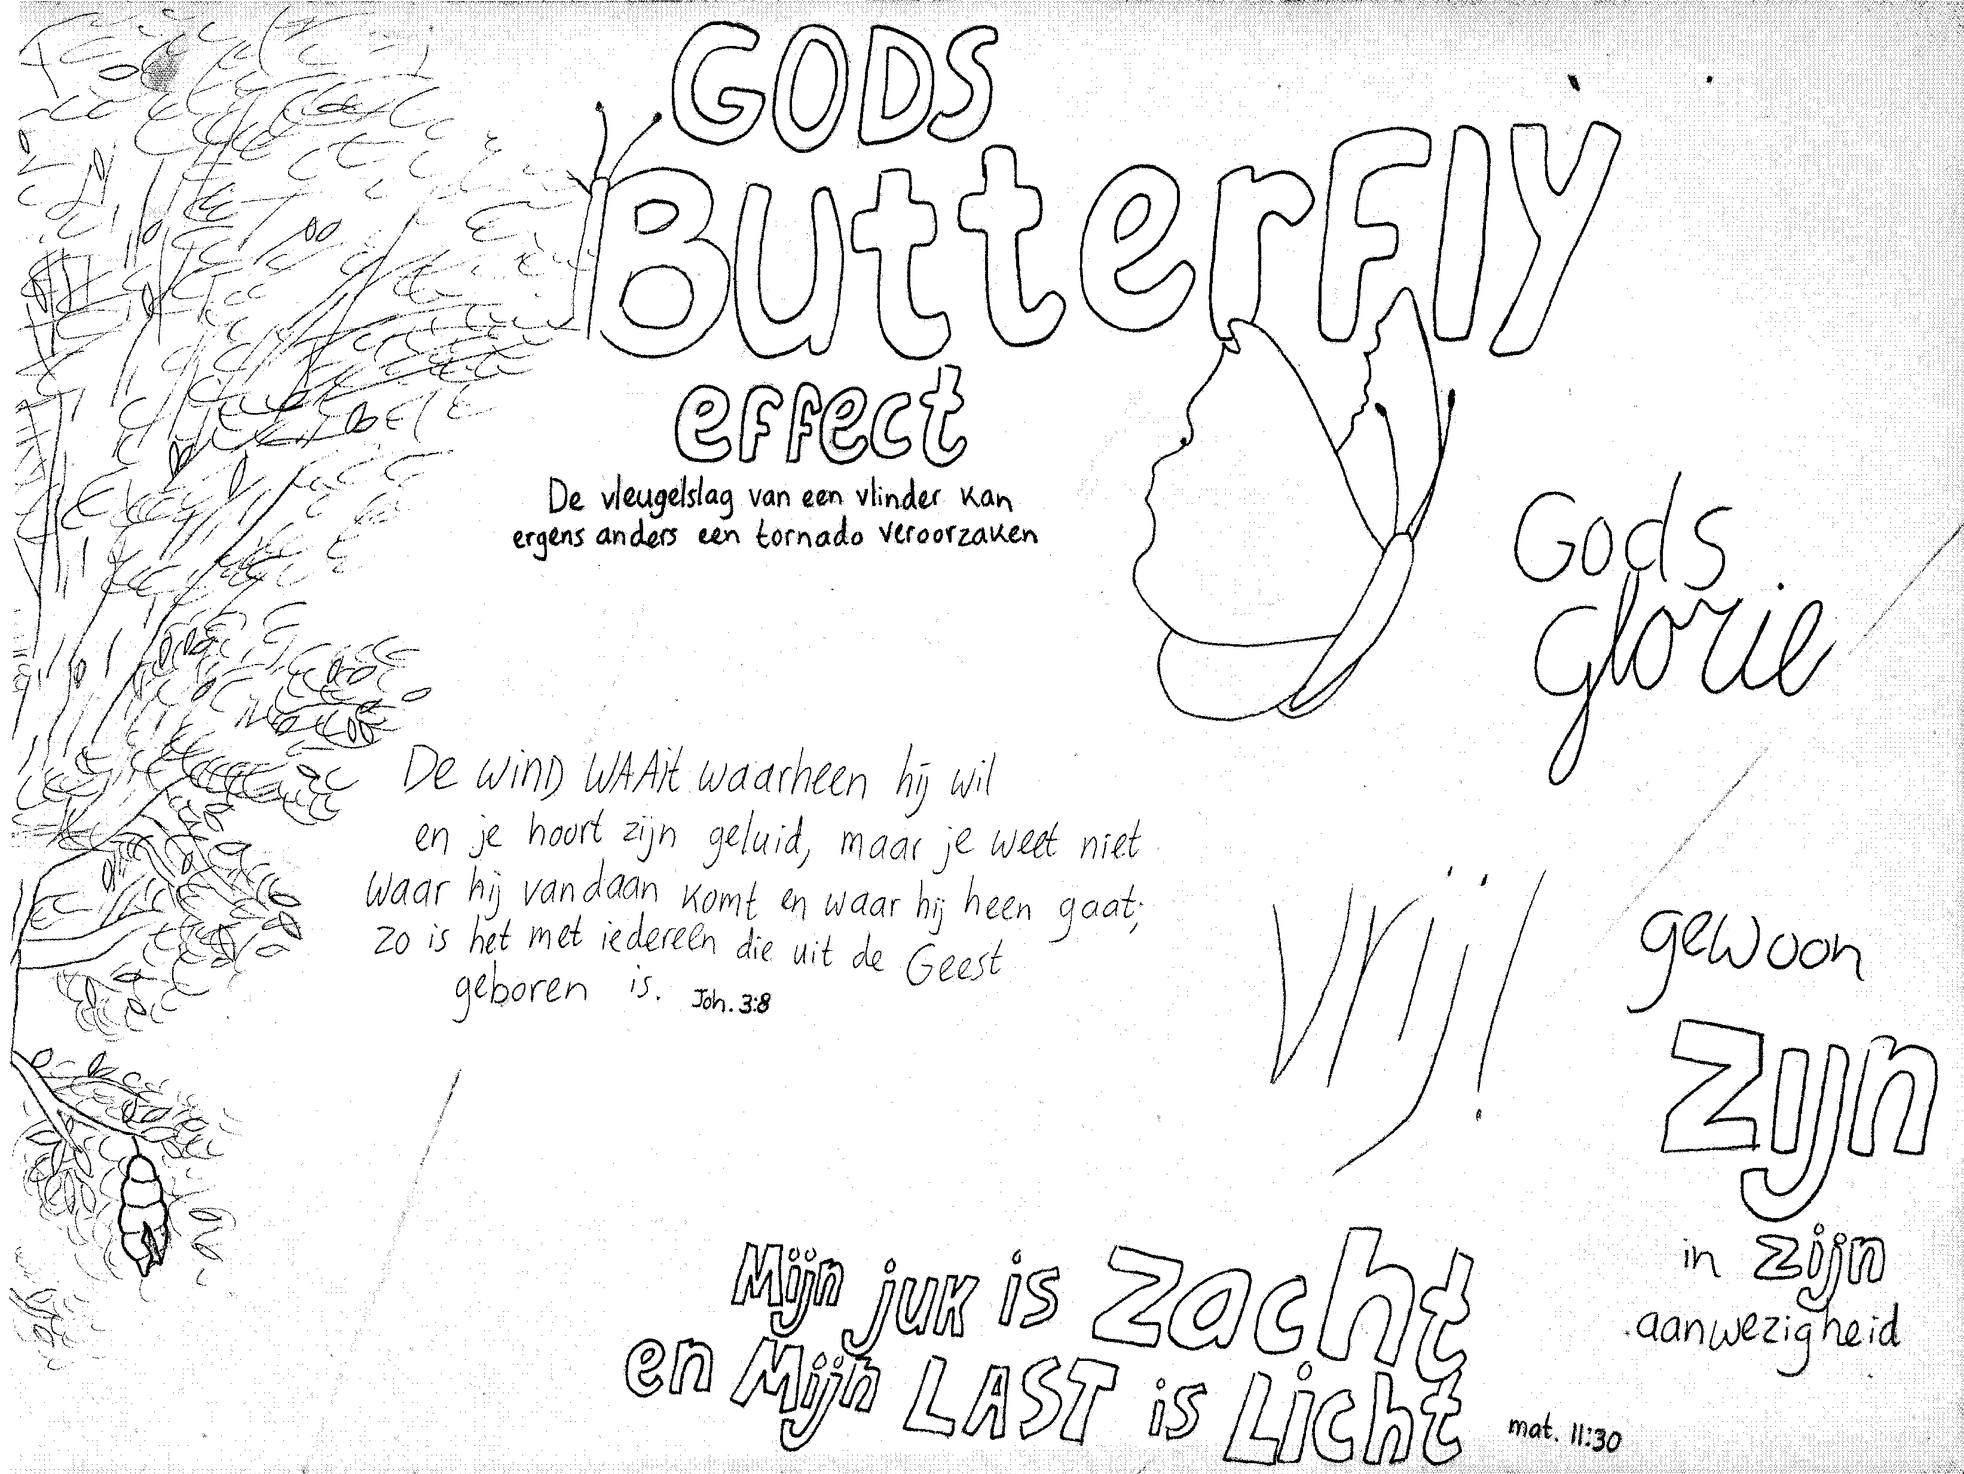 GODS
ButterFly
effect
De vleugelslag van een vlinder kan
ergens anders een tornado veroorzaken
Gods
glorie
De WIND WAAit waarheen hij wil
en je hoort zijn geluid, maar je weet niet
waar hij vandaan komt en waar hij heen gaat;
zo is het met iedereen die uit de Geest
geboren is. Joh. 3:8
Vrij!
gewoon
zijn
in zijn
aanwezigheid
Mijn juk is Zacht
en Mijn LAST is Licht
mat. 11:30